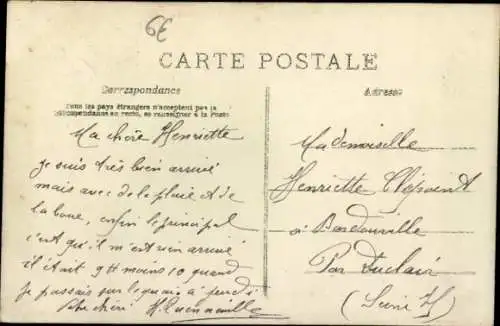 6€
CARTE POSTALE
Correspondance
Tous les pays étrangers n'acceptent pas la
correspondance au recto, se renseigner à la Poste
Ma chère Henriette
je suis très bien arrivé
mais avec de la pluie et de
la boue, enfin le principal
c'est qu'il m'est rien arrivé
il était 9 H moins 10 quand
je passais sur le quai à
chéri H.
Adresse
Mademoiselle
Henriette
à Bardouville
Par Duclair
(Seine If)